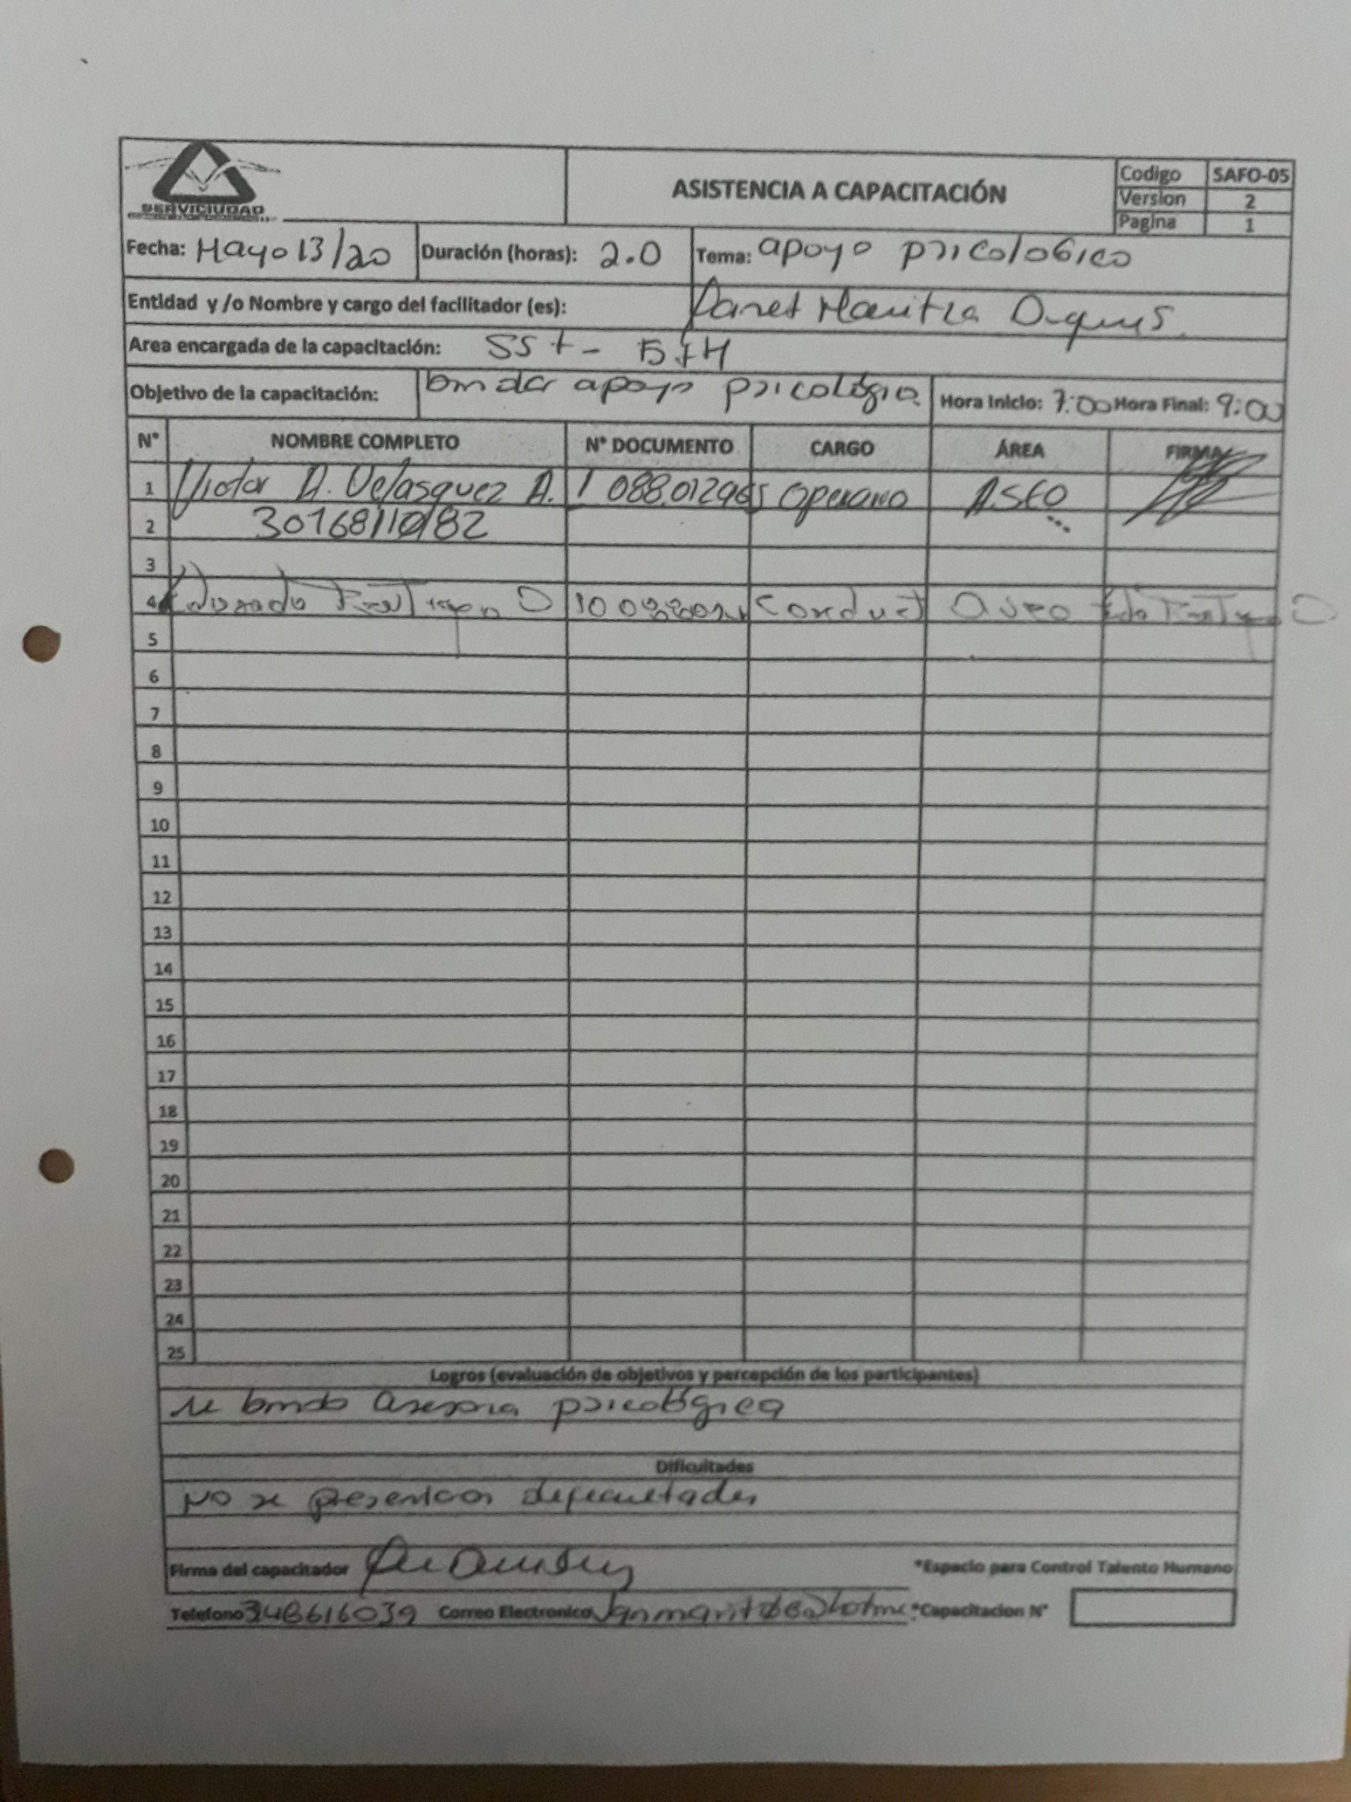 SERVICIUDAD
ASISTENCIA A CAPACITACIÓN
Codigo SAFO-05
Version 2
Pagina 1
Fecha: Mayo 13/20 Duración (horas): 2.0 Tema: apoyo psicologico
Entidad y /o Nombre y cargo del facilitador (es): Maritza
Area encargada de la capacitación: SST -
Objetivo de la capacitación: brindar apoyo psicológico Hora Inicio: 7:00 Hora Final: 9:00
N° NOMBRE COMPLETO N° DOCUMENTO CARGO ÁREA FIRMA
1 Victor A. Velasquez A. 1088.012965 Operario ASEO
2
3
4 Conduct Aseo
5
6
7
8
9
10
11
12
13
14
15
16
17
18
19
20
21
22
23
24
25
Logros (evaluación de objetivos y percepción de los participantes)
se brindo asesoria psicológica
Dificultades
No se presentaron dificultades
Firma del capacitador *Espacio para Control Talento Humano
Telefono Correo Electronico *Capacitacion N°